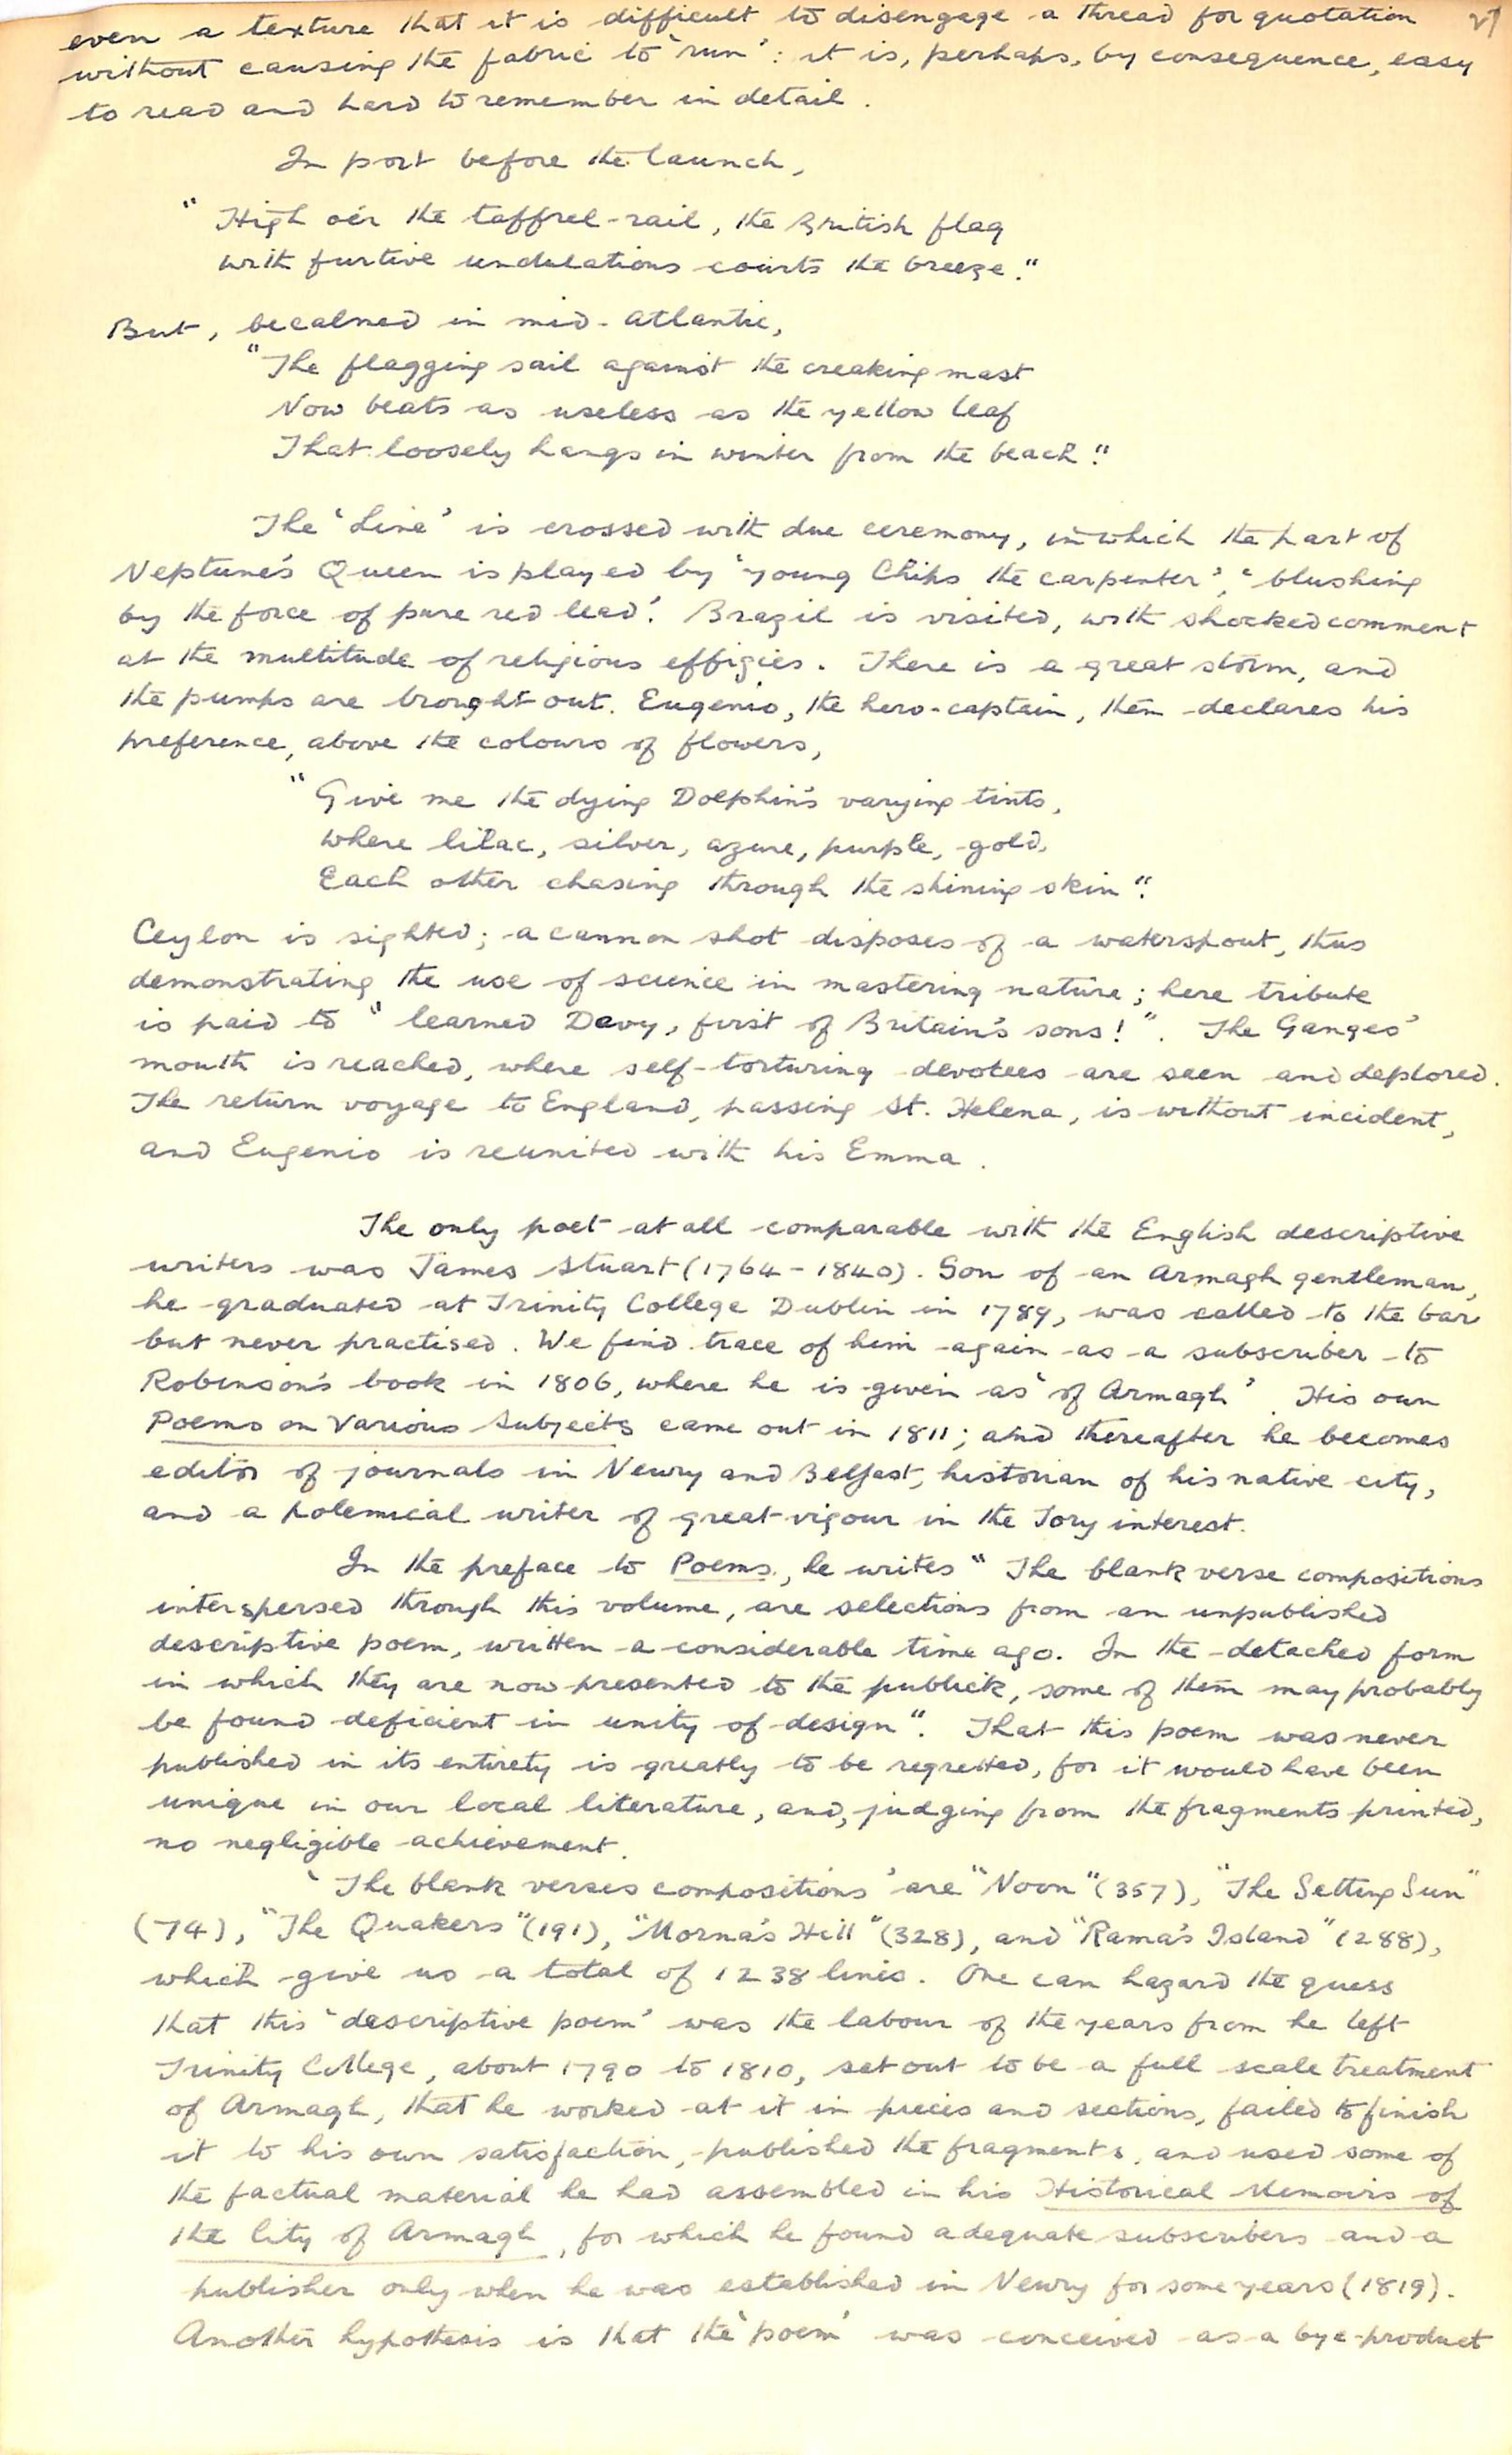 even a texture that it is difficult to disengage a thread for quotation
without causing the fabric to 'run': it is, perhaps, by consequence, easy
to read and hard to remember in detail.
In port before the launch,
"High o'er the taffrel-rail, the British flag
with furtive undulations courts the breeze."
But, becalmed in mid-Atlantic,
"The flagging sail against the creaking mast
Now beats as useless as the yellow leaf
That loosely hangs in winter from the beach."
The 'Line' is crossed with due ceremony, in which the part of
Neptune's Queen is played by 'young Chips the carpenter', 'blushing
by the force of pure red lead'. Brazil is visited, with shocked comment
at the multitude of religious effigies. There is a great storm, and
the pumps are brought out. Eugenio, the hero-captain, then declares his
preference, above the colours of flowers,
"Give me the dying Dolphin's varying tints,
where lilac, silver, azure, purple, gold,
Each other chasing through the shining skin".
Ceylon is sighted; a cannon shot disposes of a waterspout, thus
demonstrating the use of science in mastering nature; here tribute
is paid to "learned Davy, first of Britain's sons!". The Ganges'
mouth is reached, where self-torturing devotees are seen and deplored.
The return voyage to England, passing St. Helena, is without incident,
and Eugenio is reunited with his Emma.
The only poet at all comparable with the English descriptive
writers was James Stuart (1764-1840). Son of an Armagh gentleman,
he graduated at Trinity College Dublin in 1789, was called to the bar
but never practised. We find trace of him again as a subscriber to
Robinson's book in 1806, where he is given as 'of Armagh'. His own
Poems on Various Subjects came out in 1811; and thereafter he becomes
editor of journals in Newry and Belfast, historian of his native city,
and a polemical writer of great vigour in the Tory interest.
In the preface to Poems, he writes "The blank verse compositions
interspersed through this volume, are selections from an unpublished
descriptive poem, written a considerable time ago. In the detached form
in which they are now presented to the publick, some of them may probably
be found deficient in unity of design". That this poem was never
published in its entirety is greatly to be regretted, for it would have been
unique in our local literature, and, judging from the fragments printed,
no negligible achievement.
'The blank verses compositions' are "Noon" (357), "The Setting Sun"
(74), "The Quakers" (191), "Morna's Hill" (328), and "Rama's Island" (288),
which give us a total of 1238 lines. One can hazard the guess
that this 'descriptive poem' was the labour of the years from he left
Trinity College, about 1790 to 1810, set out to be a full scale treatment
of Armagh, that he worked at it in pieces and sections, failed to finish
it to his own satisfaction, published the fragments, and used some of
the factual material he had assembled in his Historical Memoirs of
the City of Armagh, for which he found adequate subscribers and a
publisher only when he was established in Newry for some years (1819).
Another hypothesis is that the 'poem' was conceived as a bye-product